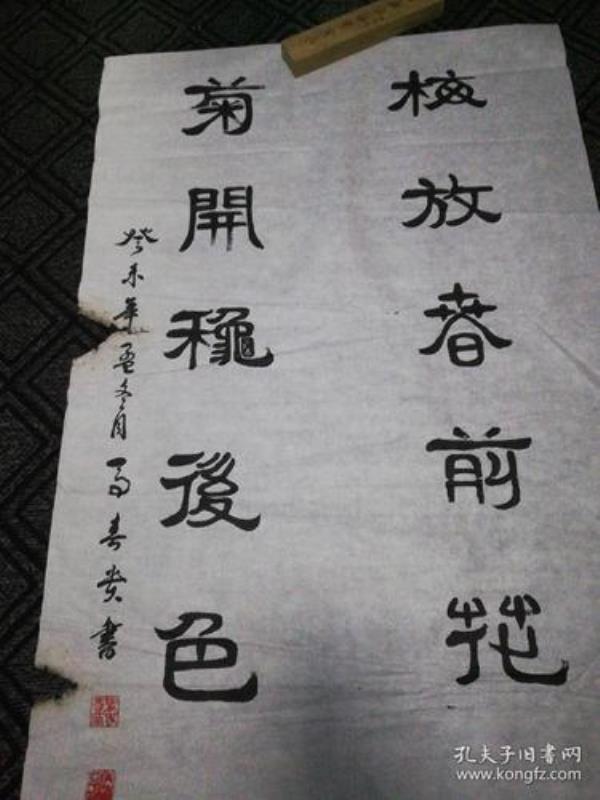 梅放春前花
菊開穐後色
癸未年孟冬月 馬春貴書
孔夫子旧书网
www.kongfz.com